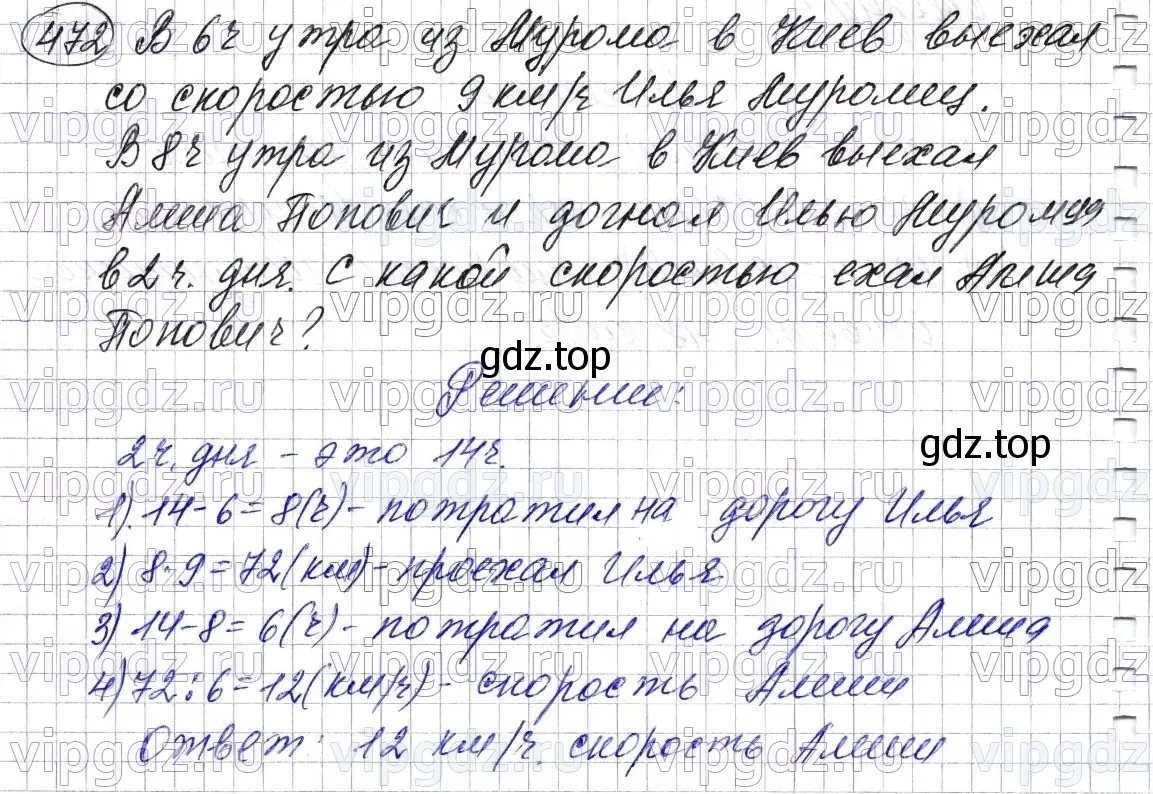 472 В 6ч утра из Мурома в Киев выехал
со скоростью 9 км/ч Илья Муромец.
В 8ч утра из Мурома в Киев выехал
Алеша Попович и догнал Илью Муромца
в 2 ч. дня. С какой скоростью ехал Алеша
Попович?
gdz.top
Решение:
2 ч. дня - это 14ч.
gdz.top
1). 14-6=8(ч)-потратил на дорогу Илья
2) 8·9=72(км)-проехал Илья
3) 14-8=6(ч)-потратил на дорогу Алеша
4) 72:6=12(км/ч)-скорость Алеши
Ответ: 12 км/ч. скорость Алеши
vipgdz.ru